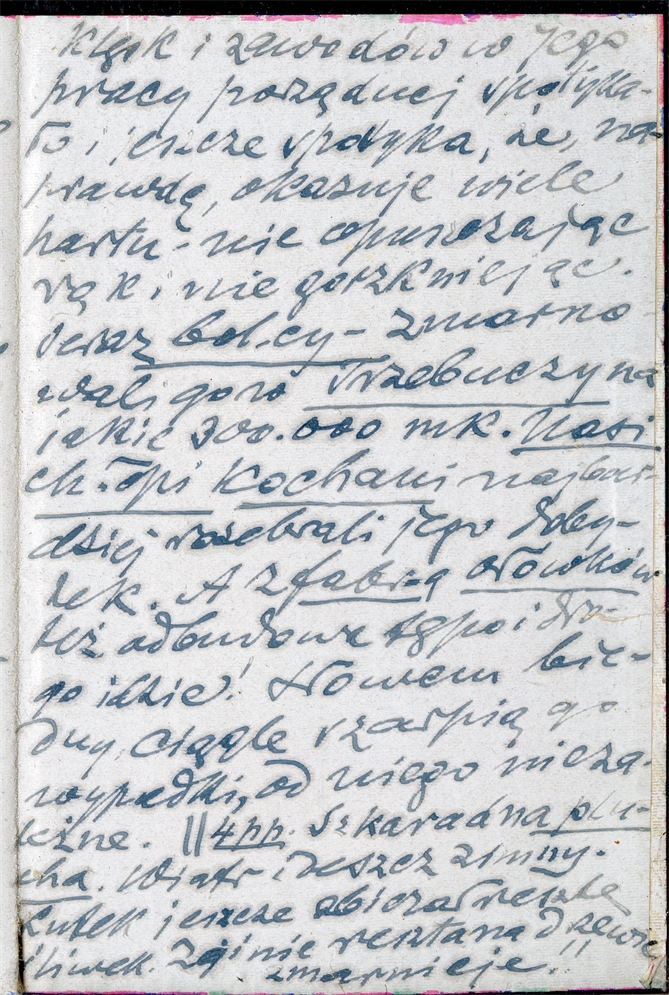 Klęsk i zawodów w Jego
pracy porządnej spotyka-
ło i jeszcze spotyka, że, na-
prawdę, okazuje wiele
hartu - nie opuszczając
rąk i nie gorzkniejąc.
Teraz bol-cy - zmarno-
wali goro Trzebuczyna
jakie 300.000 mk. Nasi
chłopi kochani najbar-
dziej rozebrali jego doby-
tek. A z fabr-ą ołówków
też odbudowa tępo i dro-
go idzie! Słowem bie-
dny, ciągle szarpią go
wypadki, od niego nieza-
leżne. || 4 pp. Szkaradna plu-
cha. Wiatr i deszcz zimny.
Lutek jeszcze obierał resztę
śliwek. Zginie reszta na drzewie
zmarnieje!!